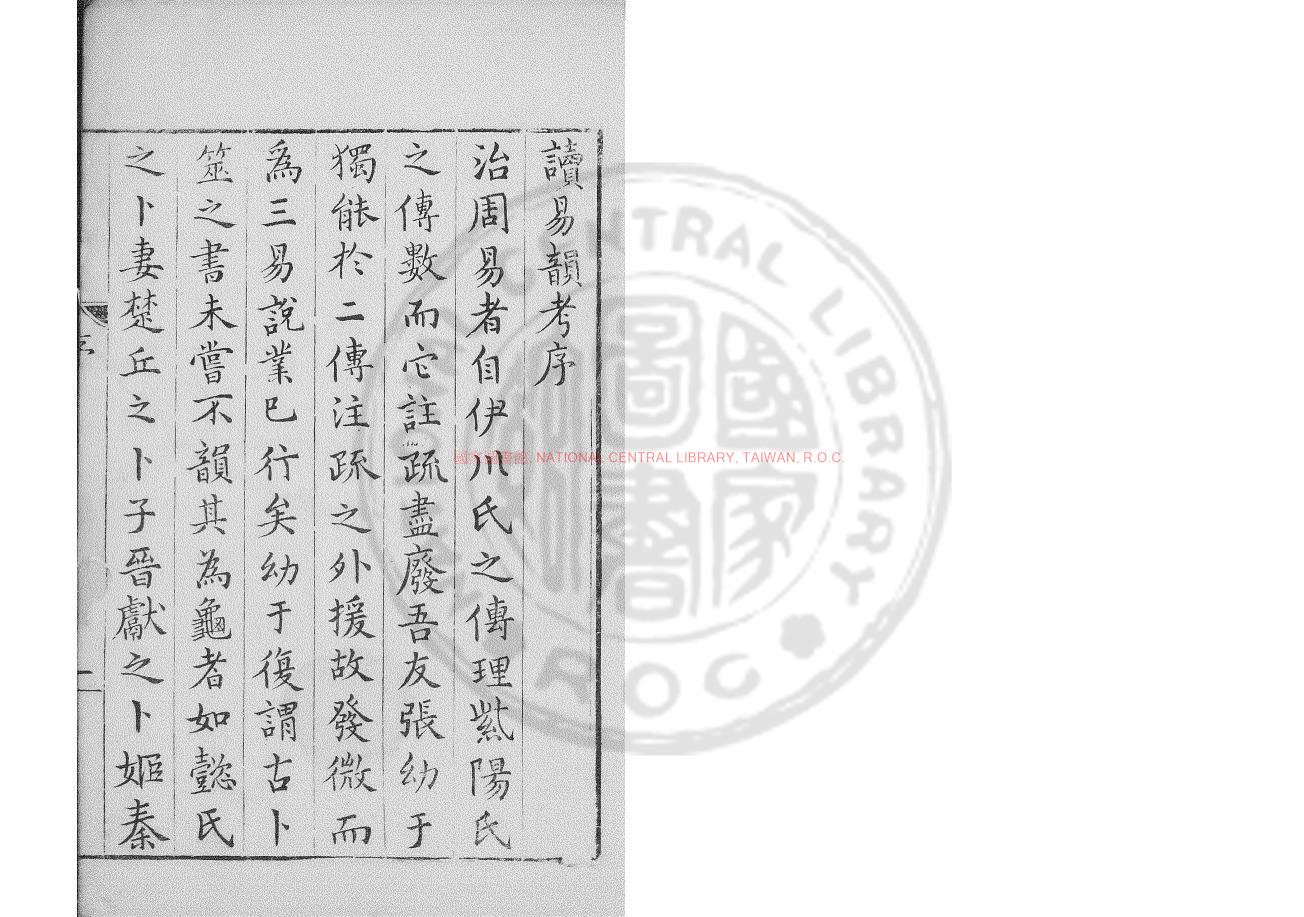 讀易韻考序
治周易者自伊川氏之傳理紫陽氏
之傳數而它註疏盡廢吾友張幼于
獨能於二傳注疏之外援故發微而
爲三易說業巳行矣幼于復謂古卜
筮之書未嘗不韻其為龜者如懿氏
之卜妻楚丘之卜子晉獻之卜姬秦
國家圖書館, NATIONAL CENTRAL LIBRARY, TAIWAN, R.O.C.
國家圖書
NATIONAL CENTRAL LIBRARY
ROC